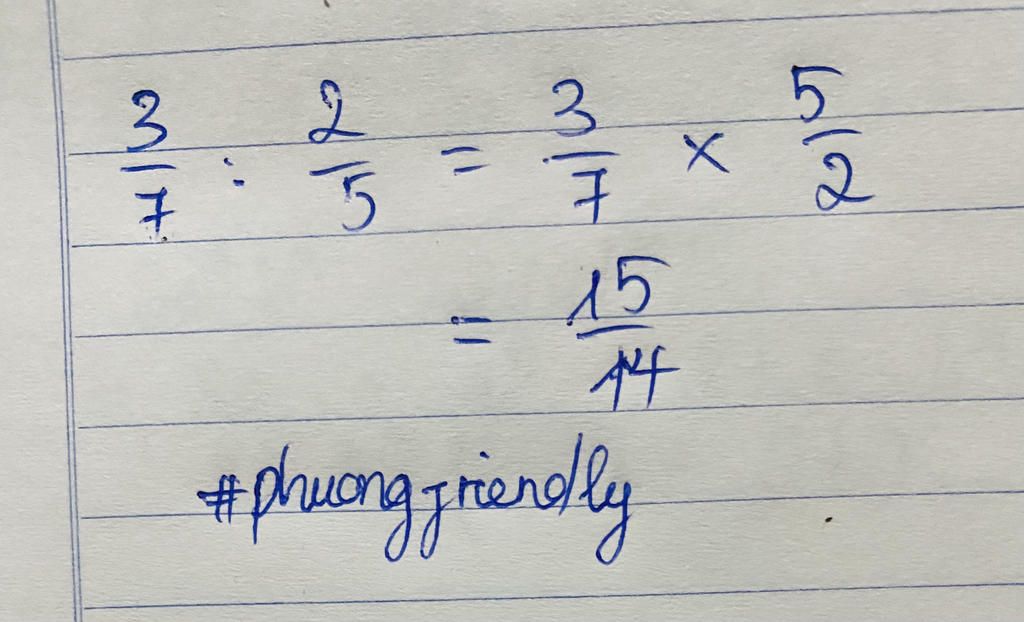 3/7 : 2/5 = 3/7 × 5/2
= 15/14
#phuongfriendly